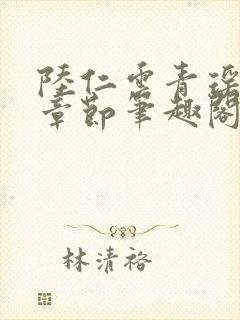 陸仁雲青瑤
章節筆趣閣
林清裕